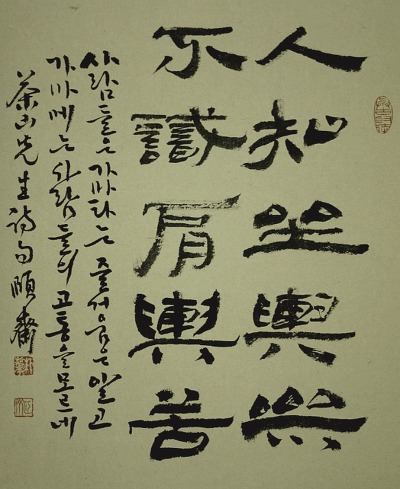 人知坐輿樂
不識肩輿苦
사람들은 가마타는 즐거움은 알고
가마메는 사람들의 고통을 모르네
茶山先生詩句 頤齋